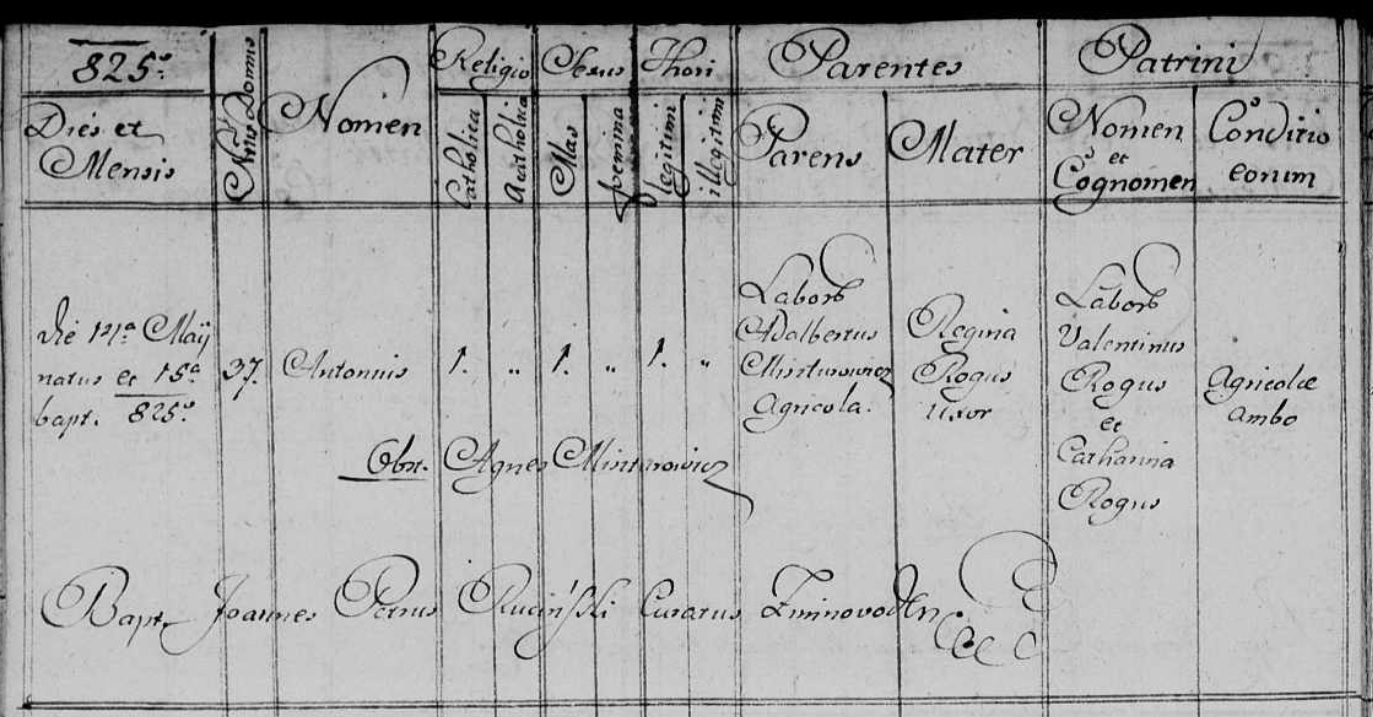 825º
Dies et
Mensis
Nrus Domus
Nomen
Religio
Catholica
Acatholica
Sexus
Mas
Foemina
Thori
legitimi
illegitimi
Parentes
Parens
Mater
Patrini
Nomen
et
Cognomen
Conditio
eorum
Die 14ª Maÿ
natus et 15ª
bapt. 825º
37.
Antonius
1.
"
1.
"
1.
"
Labors
Adalbertus
Minturowicz
Agricola.
Regina
Rogus
uxor
Labors
Valentinus
Rogus
et
Catharina
Rogus
Agricolae
ambo
Obst. Agnes Minturowicz
Bapt. Joannes Petrus Ruciński Curatus